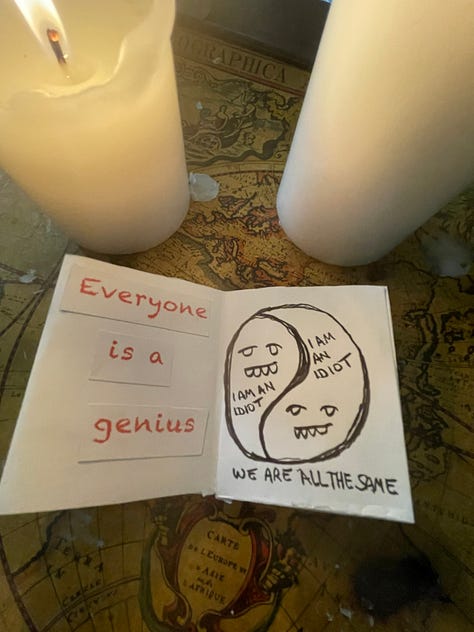 OGRAPHICA
Everyone
is a
genius
I AM AN
IDIOT
I AM
AN
IDIOT
WE ARE ALL THE SAME
CARTE
DE L'EUROPE
D'ASIE
D'AFRIQUE